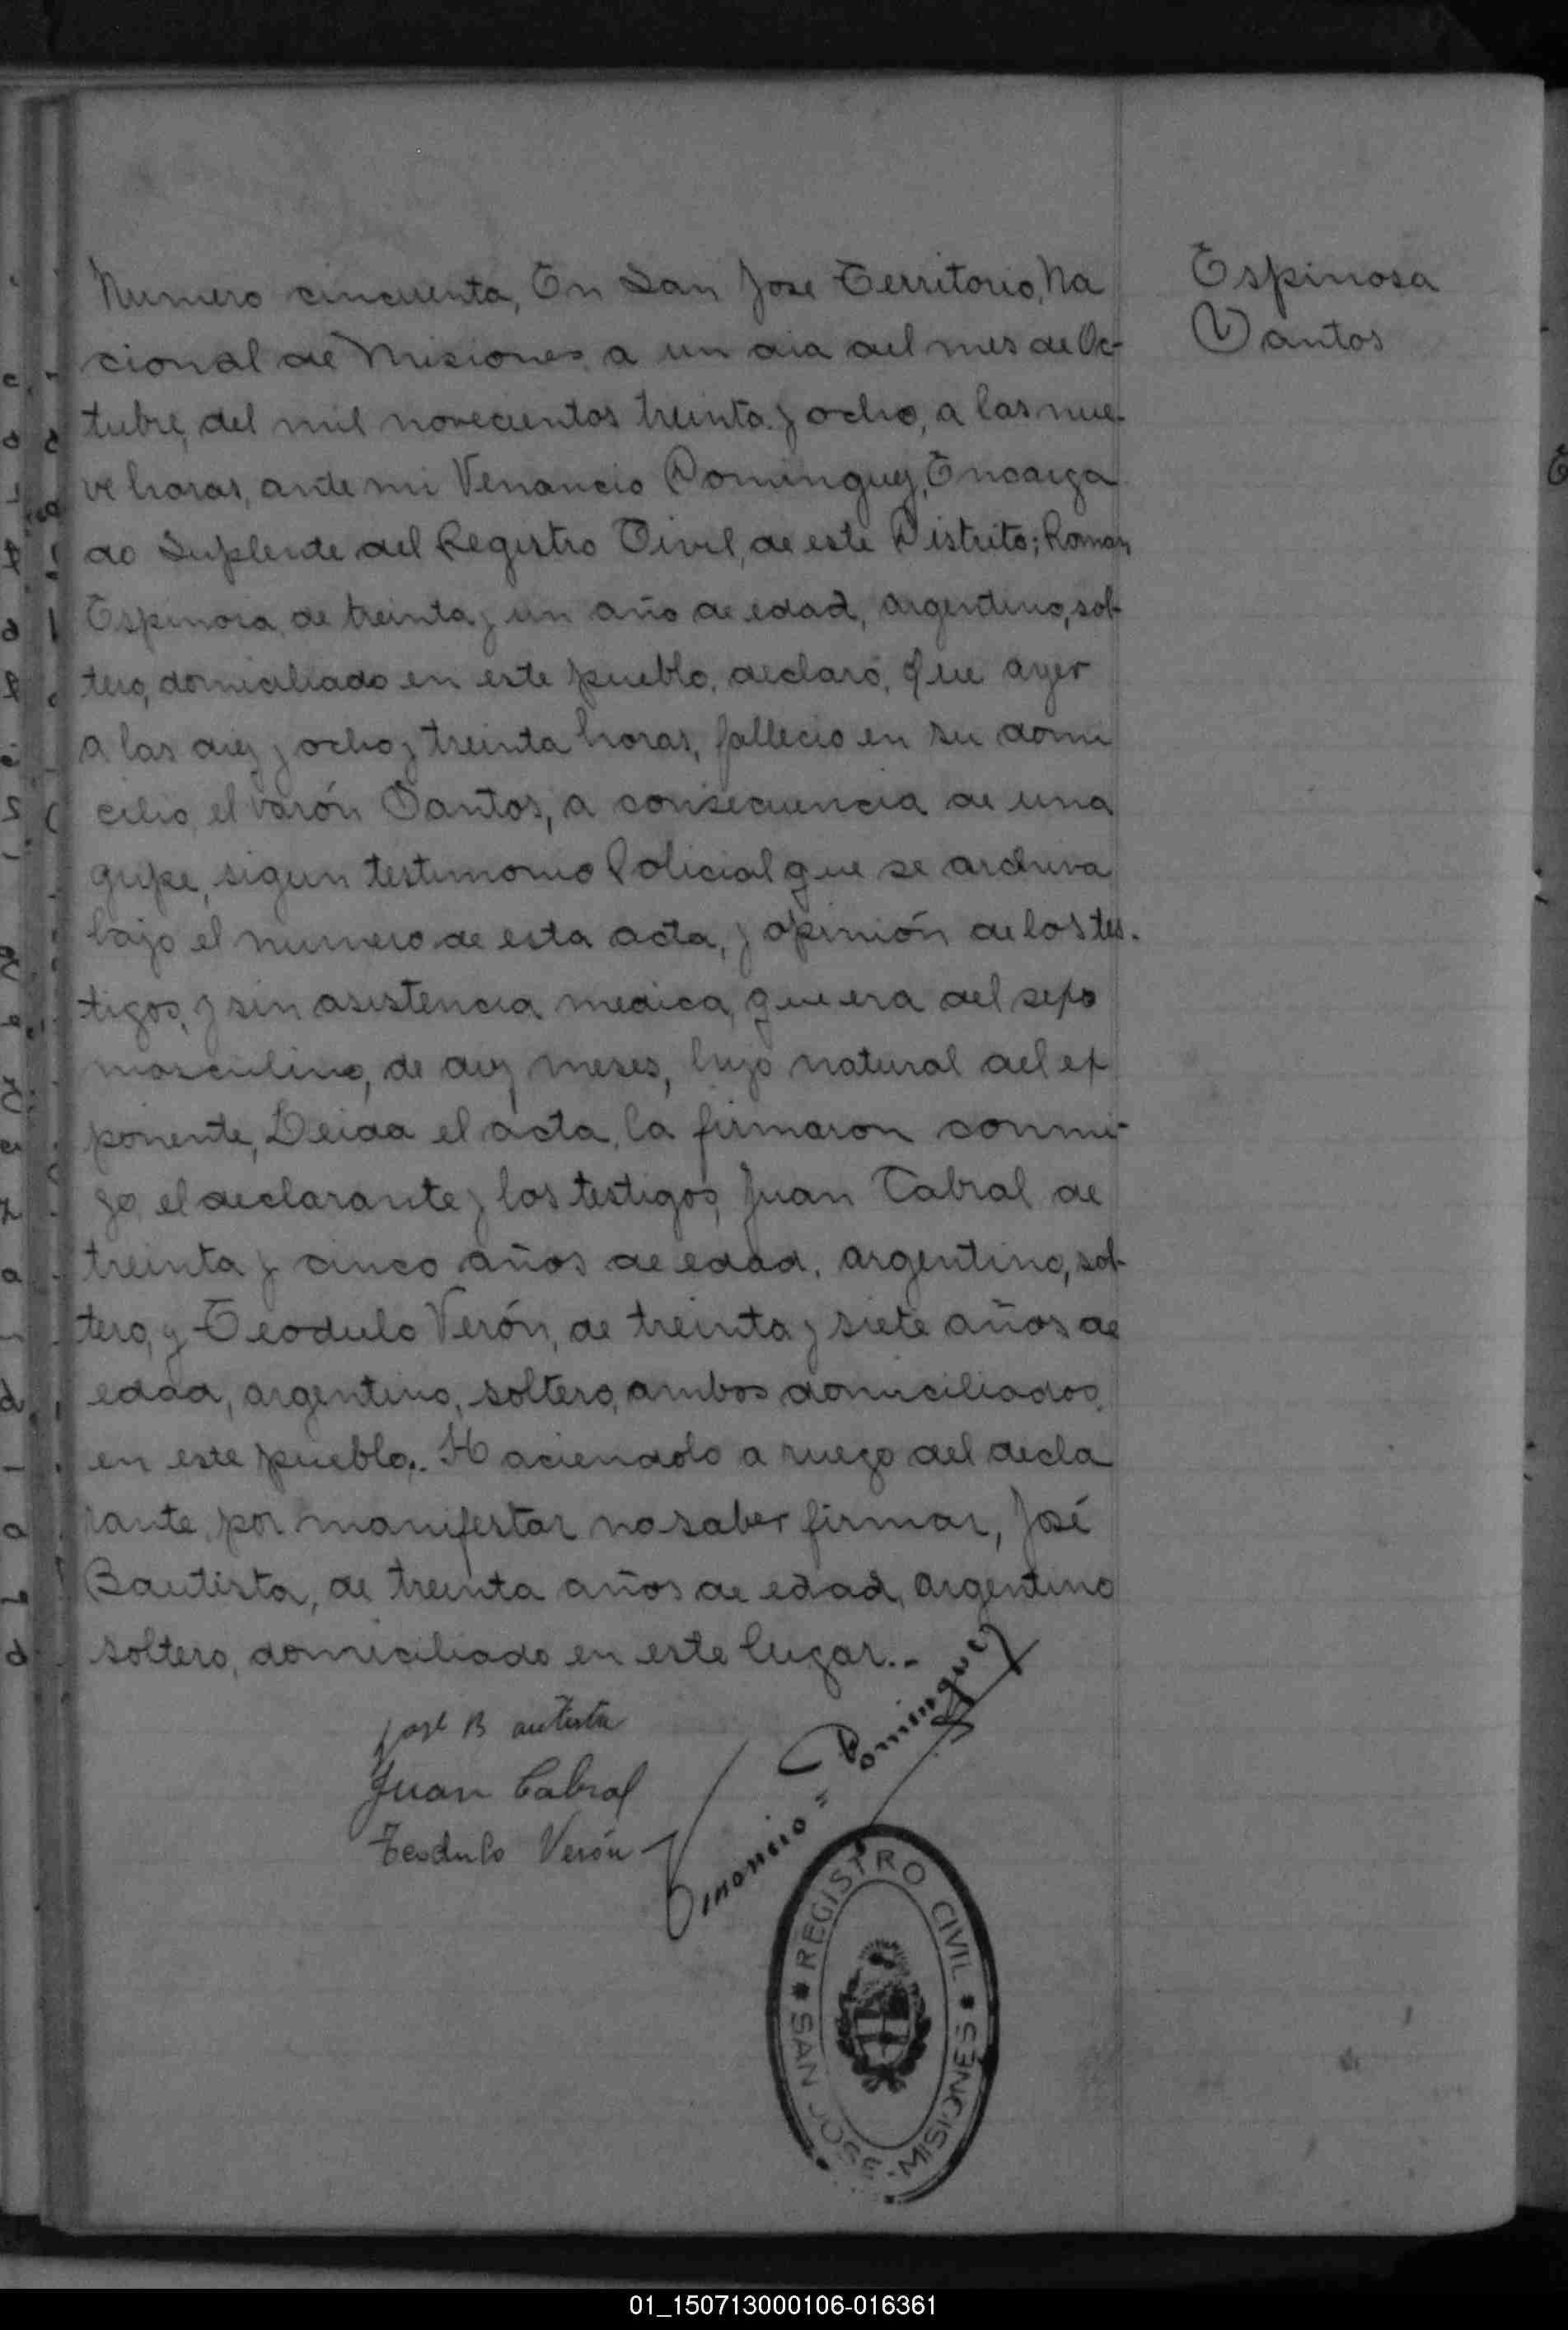 Numero cincuenta, En San Jose Territorio, Na
cional de Misiones a un dia del mes de Oc-
tubre, del mil novecientos treinta y ocho, a las nue-
ve horas, ante mi Venancio Dominguez, Encarga
do Suplente del Registro Civil, de este Distrito; Roman
Espinosa, de treinta y un año de edad, argentino, sol-
tero, domiciliado en este pueblo, declaró, que ayer
a las diez y ocho y treinta horas, fallecio en su domi
cilio, el varón Santos, a consecuencia de una
gripe, sigun testimonio Policial que se archiva
bajo el numero de esta acta, y opinión de los tes-
tigos, y sin asistencia medica, que era del sexo
masculino, de diez meses, hijo natural del ex
ponente, Leida el acta, la firmaron conmi-
go, el declarante y los testigos, Juan Cabral de
treinta y cinco años de edad, argentino, sol-
tero, y Teodulo Verón, de treinta y siete años de
edad, argentino, soltero, ambos domiciliados,
en este pueblo.. Haciendolo a ruego del decla
rante, por manifestar no saber firmar, José
Bautista, de treinta años de edad, argentino
soltero, domiciliado en este lugar..-
Espinosa
Santos
José Bautista
Juan Cabral
Teodulo Verón
Venancio = Dominguez
REGISTRO CIVIL
SAN JOSE - MISIONES
01_150713000106-016361